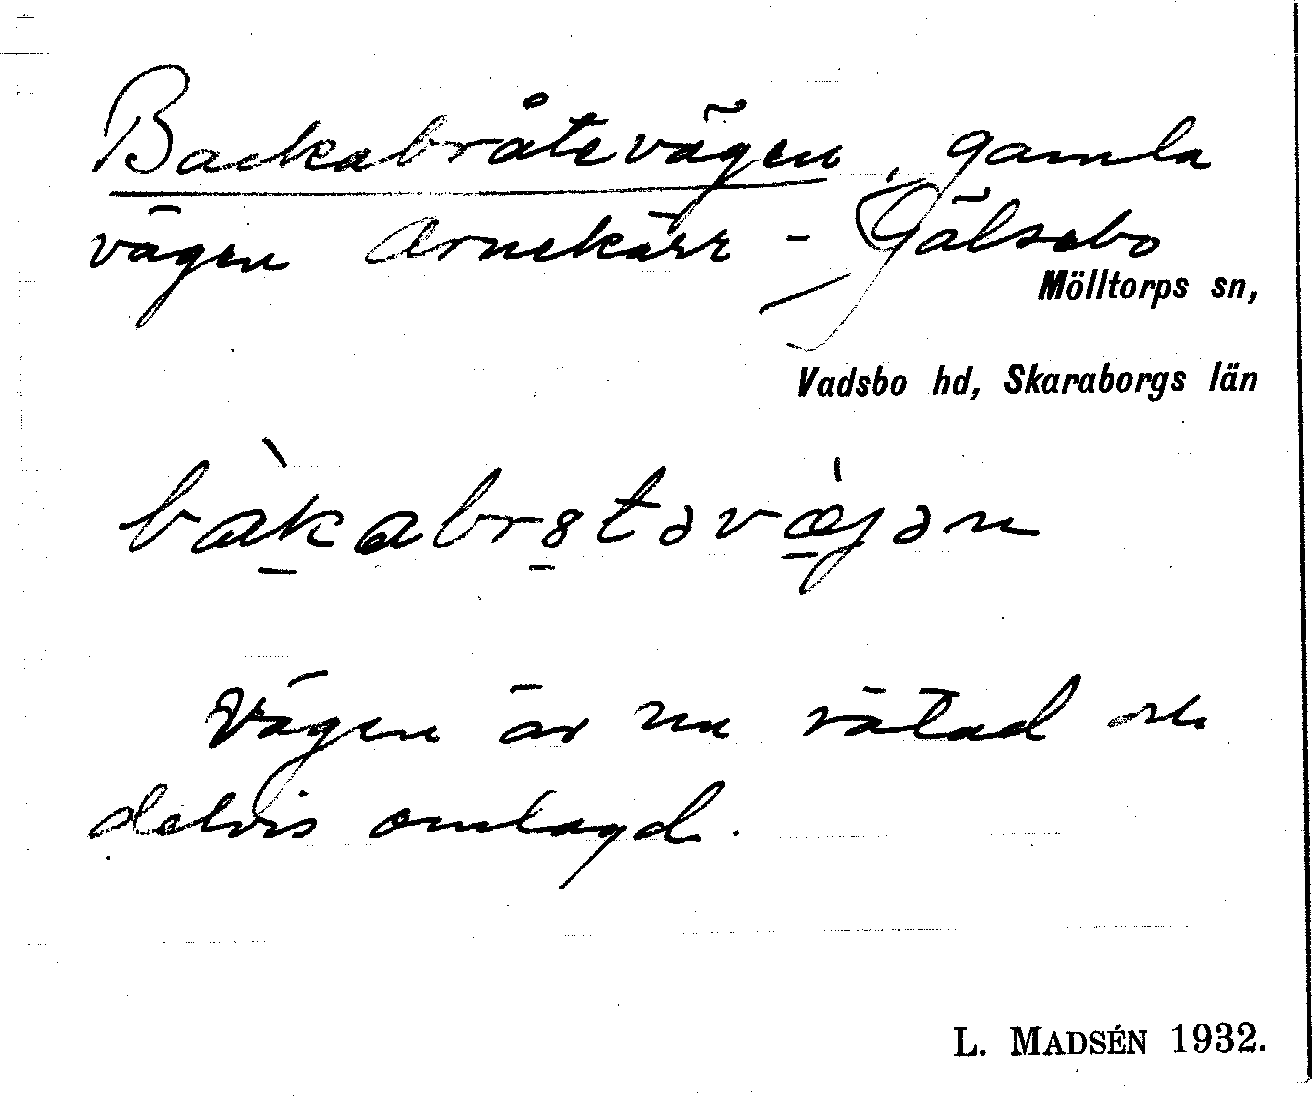 Backabråtevägen, gamla
vägen Arnekärr – Gälsebo
Mölltorps sn,
Vadsbo hd, Skaraborgs län
bàkabr8təvæ̀jən
Vägen är nu rätad och
delvis omlagd.
L. MADSÉN 1932.